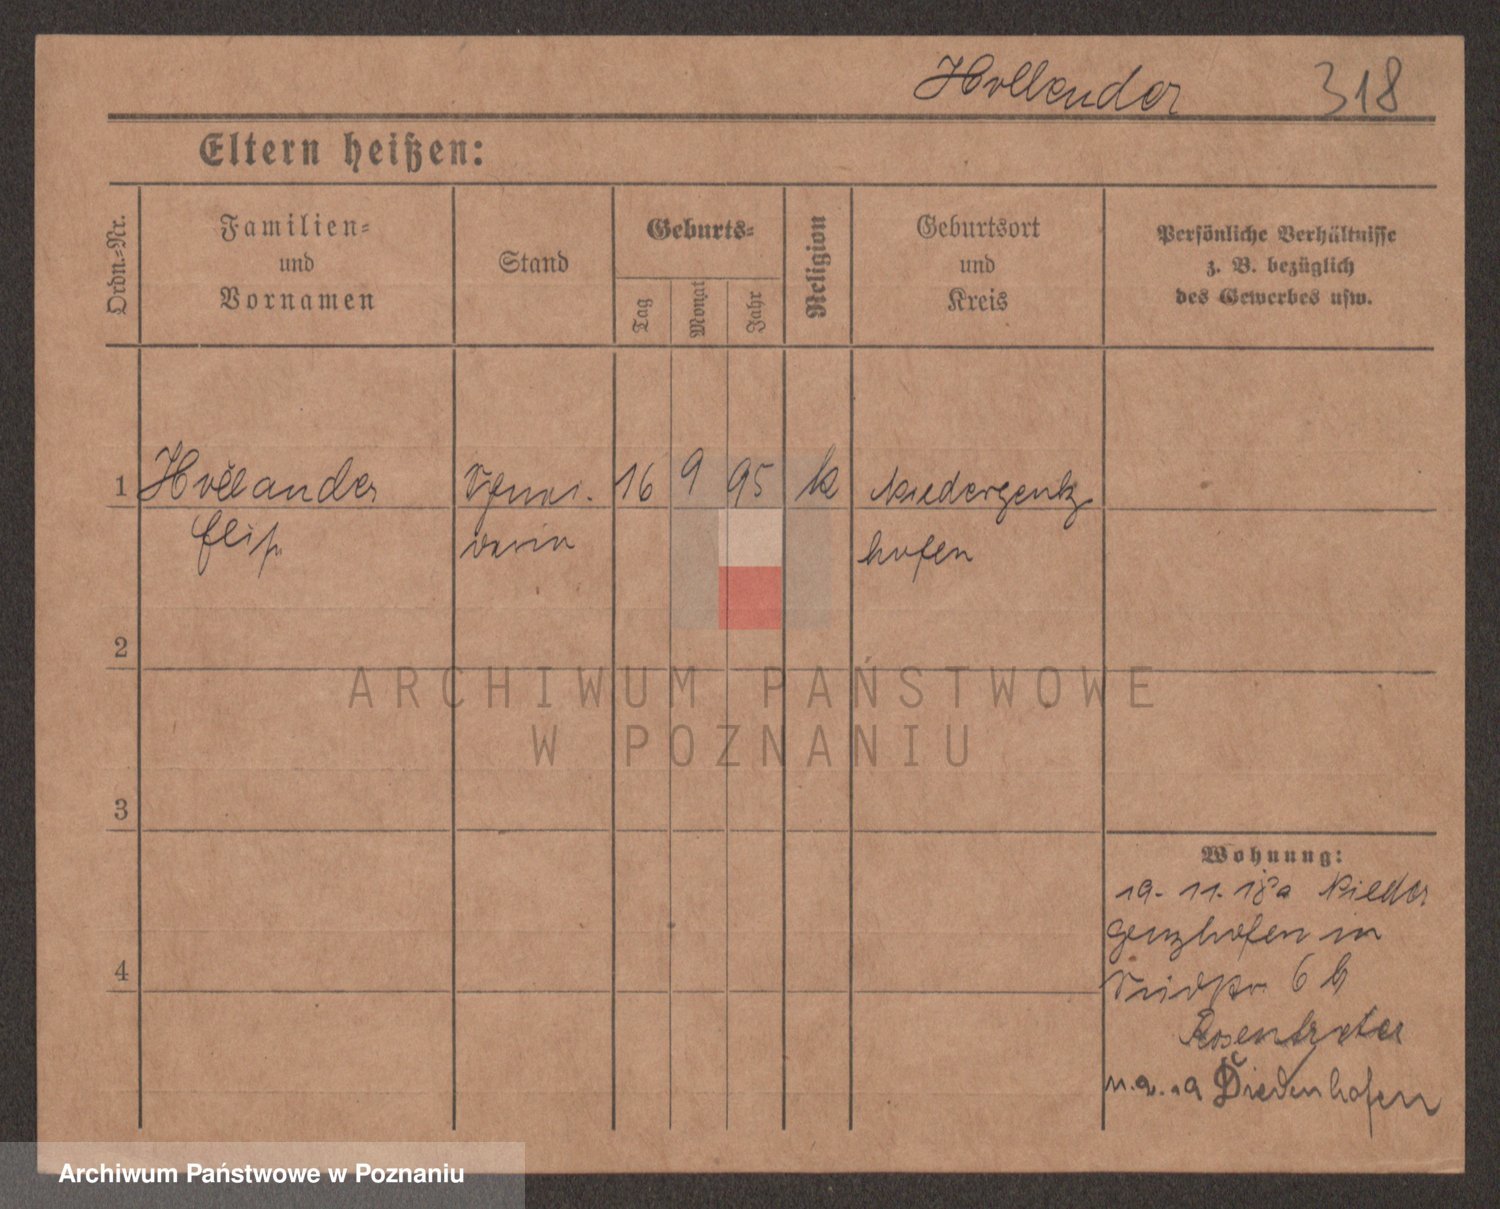 Hollender 318
Eltern heißen:
Ordn.=Nr.
Familien=
und
Vornamen
Stand
Geburts=
Tag
Monat
Jahr
Religion
Geburtsort
und
Kreis
Persönliche Verhältnisse
z. B. bezüglich
des Gewerbes usw.
1 Hollander 16 9 95 k Niedergentz
hofen
2
3
4
Wohnung:
19. 11. 18 Nieder
genzhofen in
6
Rosentreter
Diedenhofen
ARCHIWUM PAŃSTWOWE
W POZNANIU
Archiwum Państwowe w Poznaniu